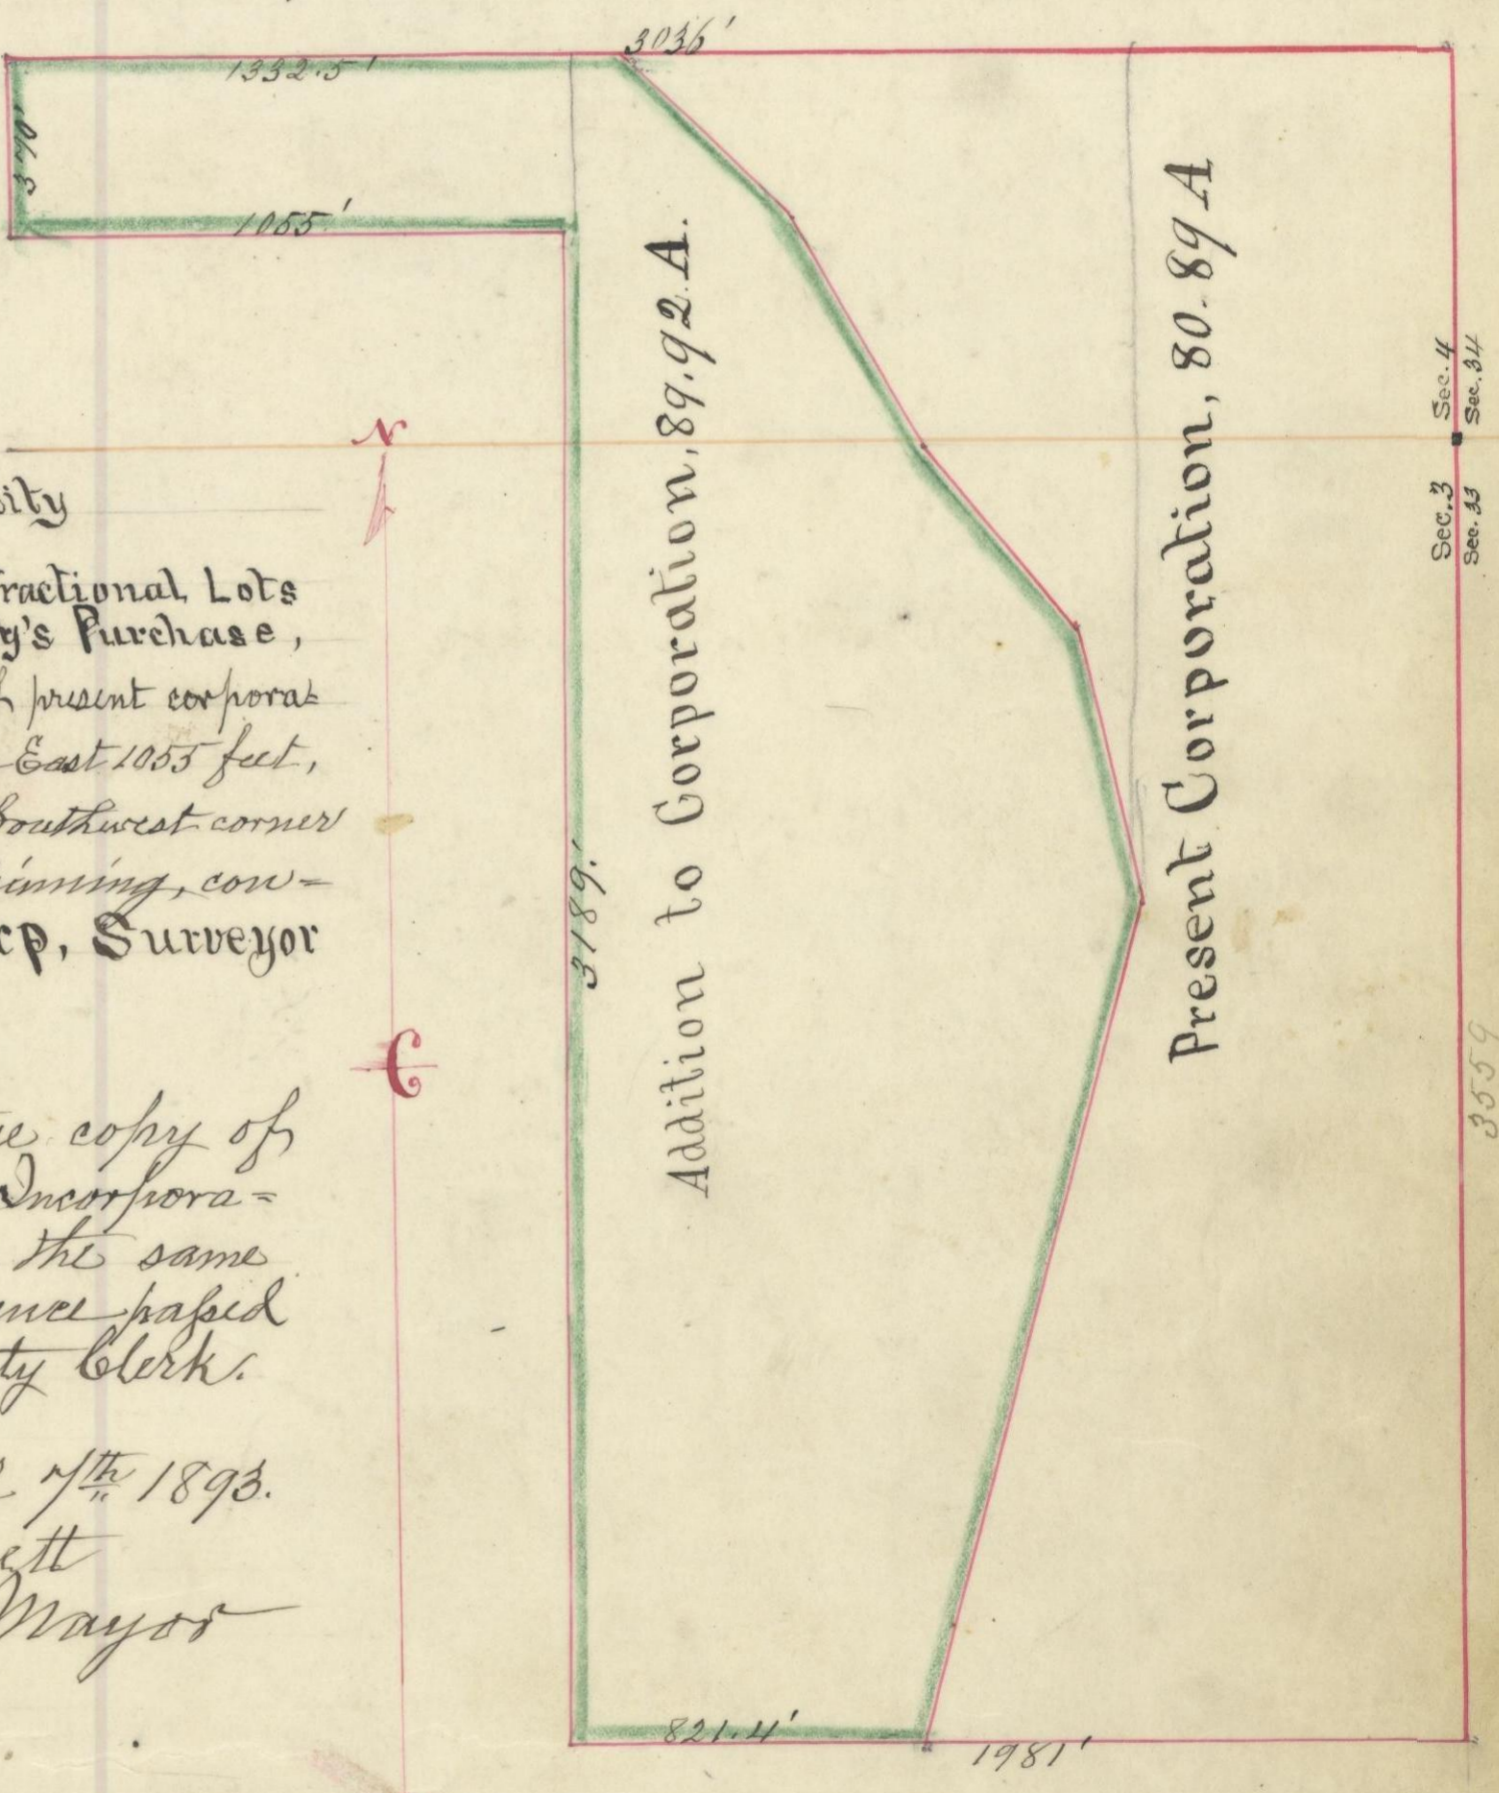 3036'
1332.5'
370'
1055'
Addition to Corporation, 89.92 A.
Present Corporation, 80.89 A
Sec. 4
Sec. 34
Sec. 3
Sec. 33
N
sity
ractional Lots
y's Purchase,
present corpora=
East 1055 feet,
Southwest corner
inning, con=
rp, Surveyor
3189.'
3559
copy of
Incorpora=
the same
ance passed
ty Clerk.
7th 1893.
ett
Mayor
821.4'
1981'